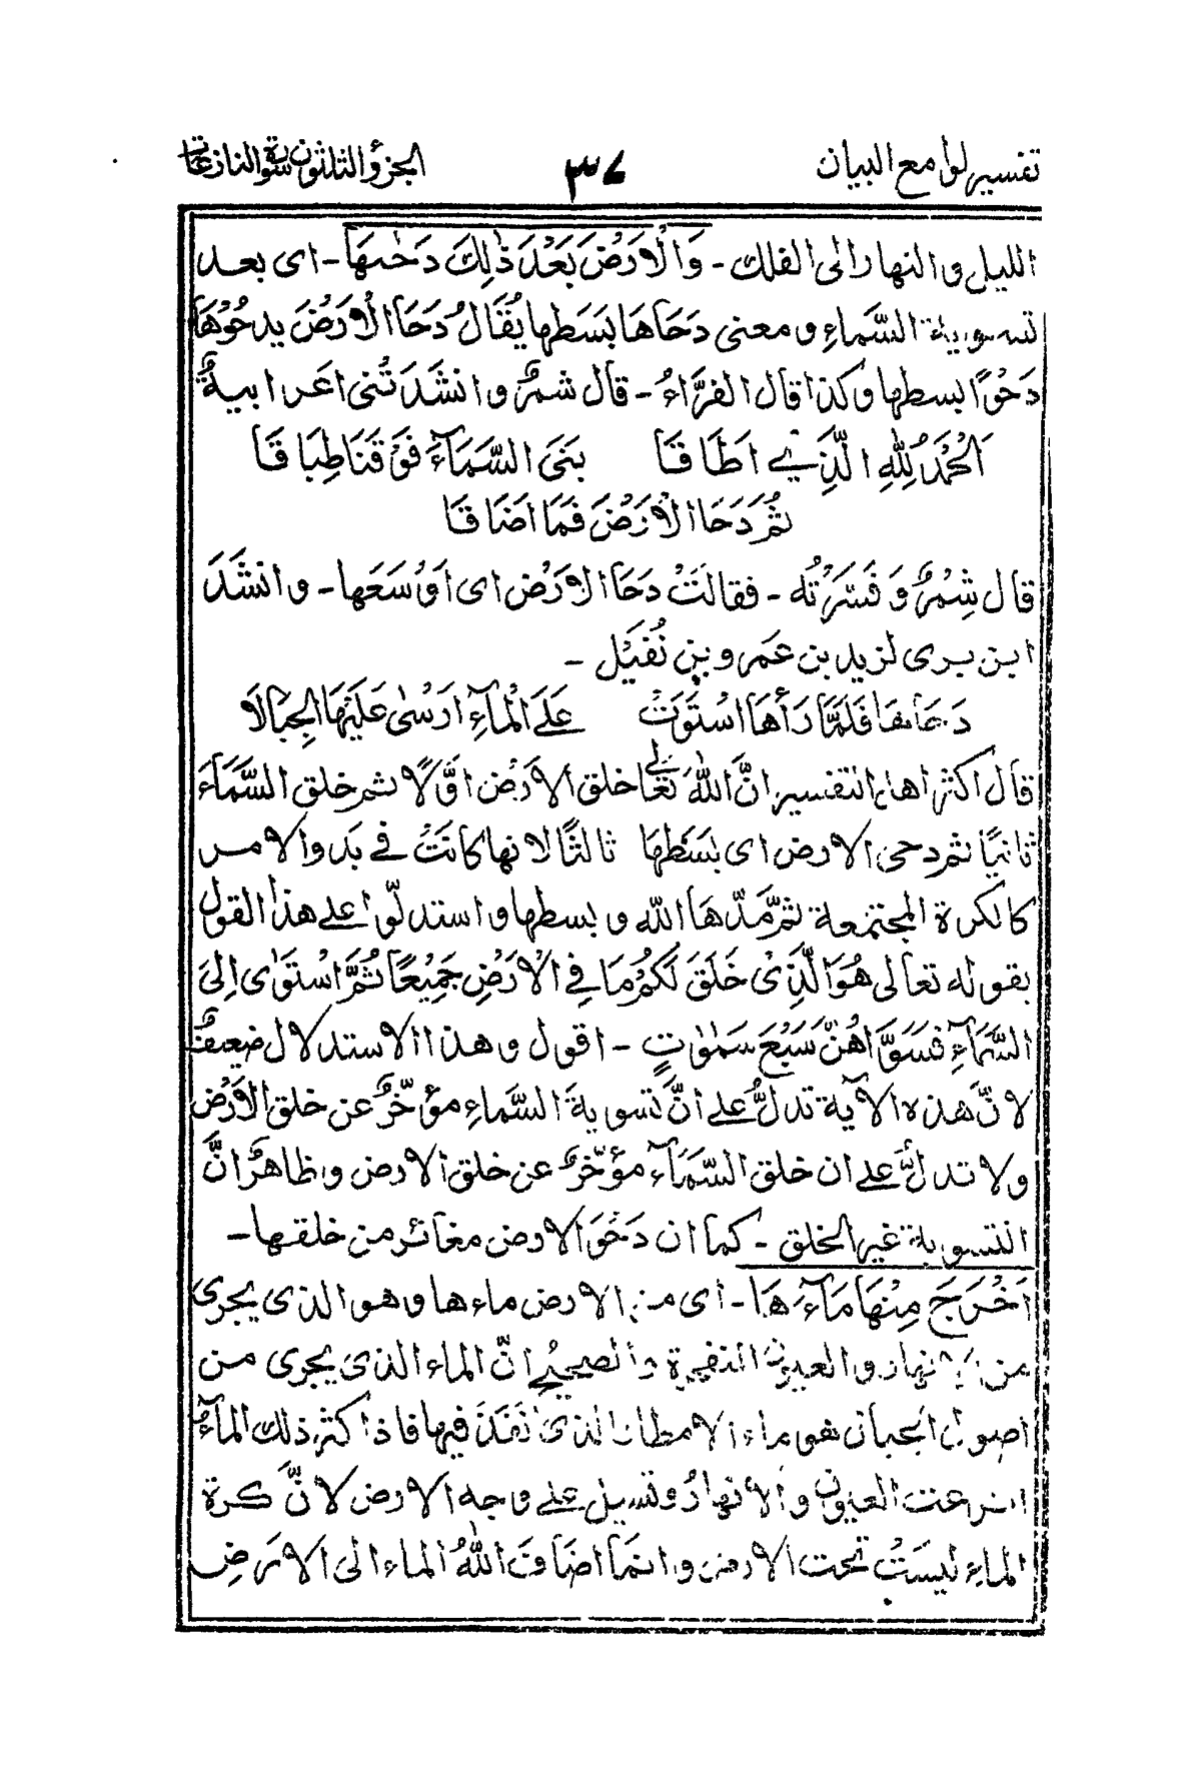 تفسير لوامع البيان
٣٧
الجزؤ الثلثون سورة النازعات
الليل والنهار الى الفلك - وَالْاَرْضَ بَعْدَ ذٰلِكَ دَحٰىهَا - اى بعد
تسوية السَّمَاءِ ومعنى دَحَاهَا بسَطها يُقَالُ دَحَا الْاَرْضَ يدحُوْهَا
دَحْوًا بسطها وكذا قال الفَرَّاءُ - قال شمرٌ وانشَدَتْنى اعرابيةٌ
اَلْحَمْدُ لِلّٰهِ الَّذِيْ اَطَاقَا بَنَى السَّمَآءَ فَوْقَنَا طِبَاقَا
ثُمَّ دَحَا الْاَرْضَ فَمَا اَضَاقَا
قال شِمْرٌ وَفَسَّرَتْه - فقالَتْ دَحَا الاَرْض اى اَوْسَعَها - وانشَدَ
ابن برى لزيد بن عَمرو بنِ نُفَيْل -
دَحَاهَا فَلَمَّا رَأٰهَا اسْتَوَتْ عَلَى الْمَآءِ اَرْسٰى عَلَيْهَا الْجِبَالَا
قال اكثر اهل التفسير انَّ اللّٰهَ تعالٰى خلق الاَرْض اوَّلًا ثم خلق السَّمَآءَ
ثانيًا ثم دحى الارض اى بَسَطهَا ثالثًا لانها كانَتْ فى بدو الامر
كالكرة المجتمعة ثمَّ مَدَّهَا اللّٰه وبسطها واستدلّوا على هذا القول
بقوله تعالى هُوَ الَّذِىْ خَلَقَ لَكُمْ مَا فِى الْاَرْضِ جَمِيْعًا ثُمَّ اسْتَوٰى اِلَى
السَّمَآءِ فَسَوَّاهُنَّ سَبْعَ سَمٰوٰتٍ - اقول وهذا الاستدلال ضعيفٌ
لانَّ هذه الآية تدلُّ على انَّ تسويةَ السَّماءِ مؤخّرٌ عن خلق الاَرْض
ولا تدلُّ على ان خلق السَّمَآء مؤخّرٌ عن خلق الارض وظاهرٌ انَّ
التسوية غير الخلق - كما ان دَحْوَ الارض مغائر من خلقها -
اَخْرَجَ مِنْهَا مَآءَهَا - اى من الارض ماءها وهو الذى يجرى
من الانهار والعيون المنفجرة والصحيح انّ الماء الذى يجرى من
اصول الجبال هو ماء الامطار الذى نَفَذَ فيها فاذا كثر ذلك المآءُ
العيون والأنهارُ وتسيل على وجه الارض لانَّ كرة
الماءِ ليسَتْ تحت الارض وانما اضَافَ اللّٰهُ الماء الى الارضِ